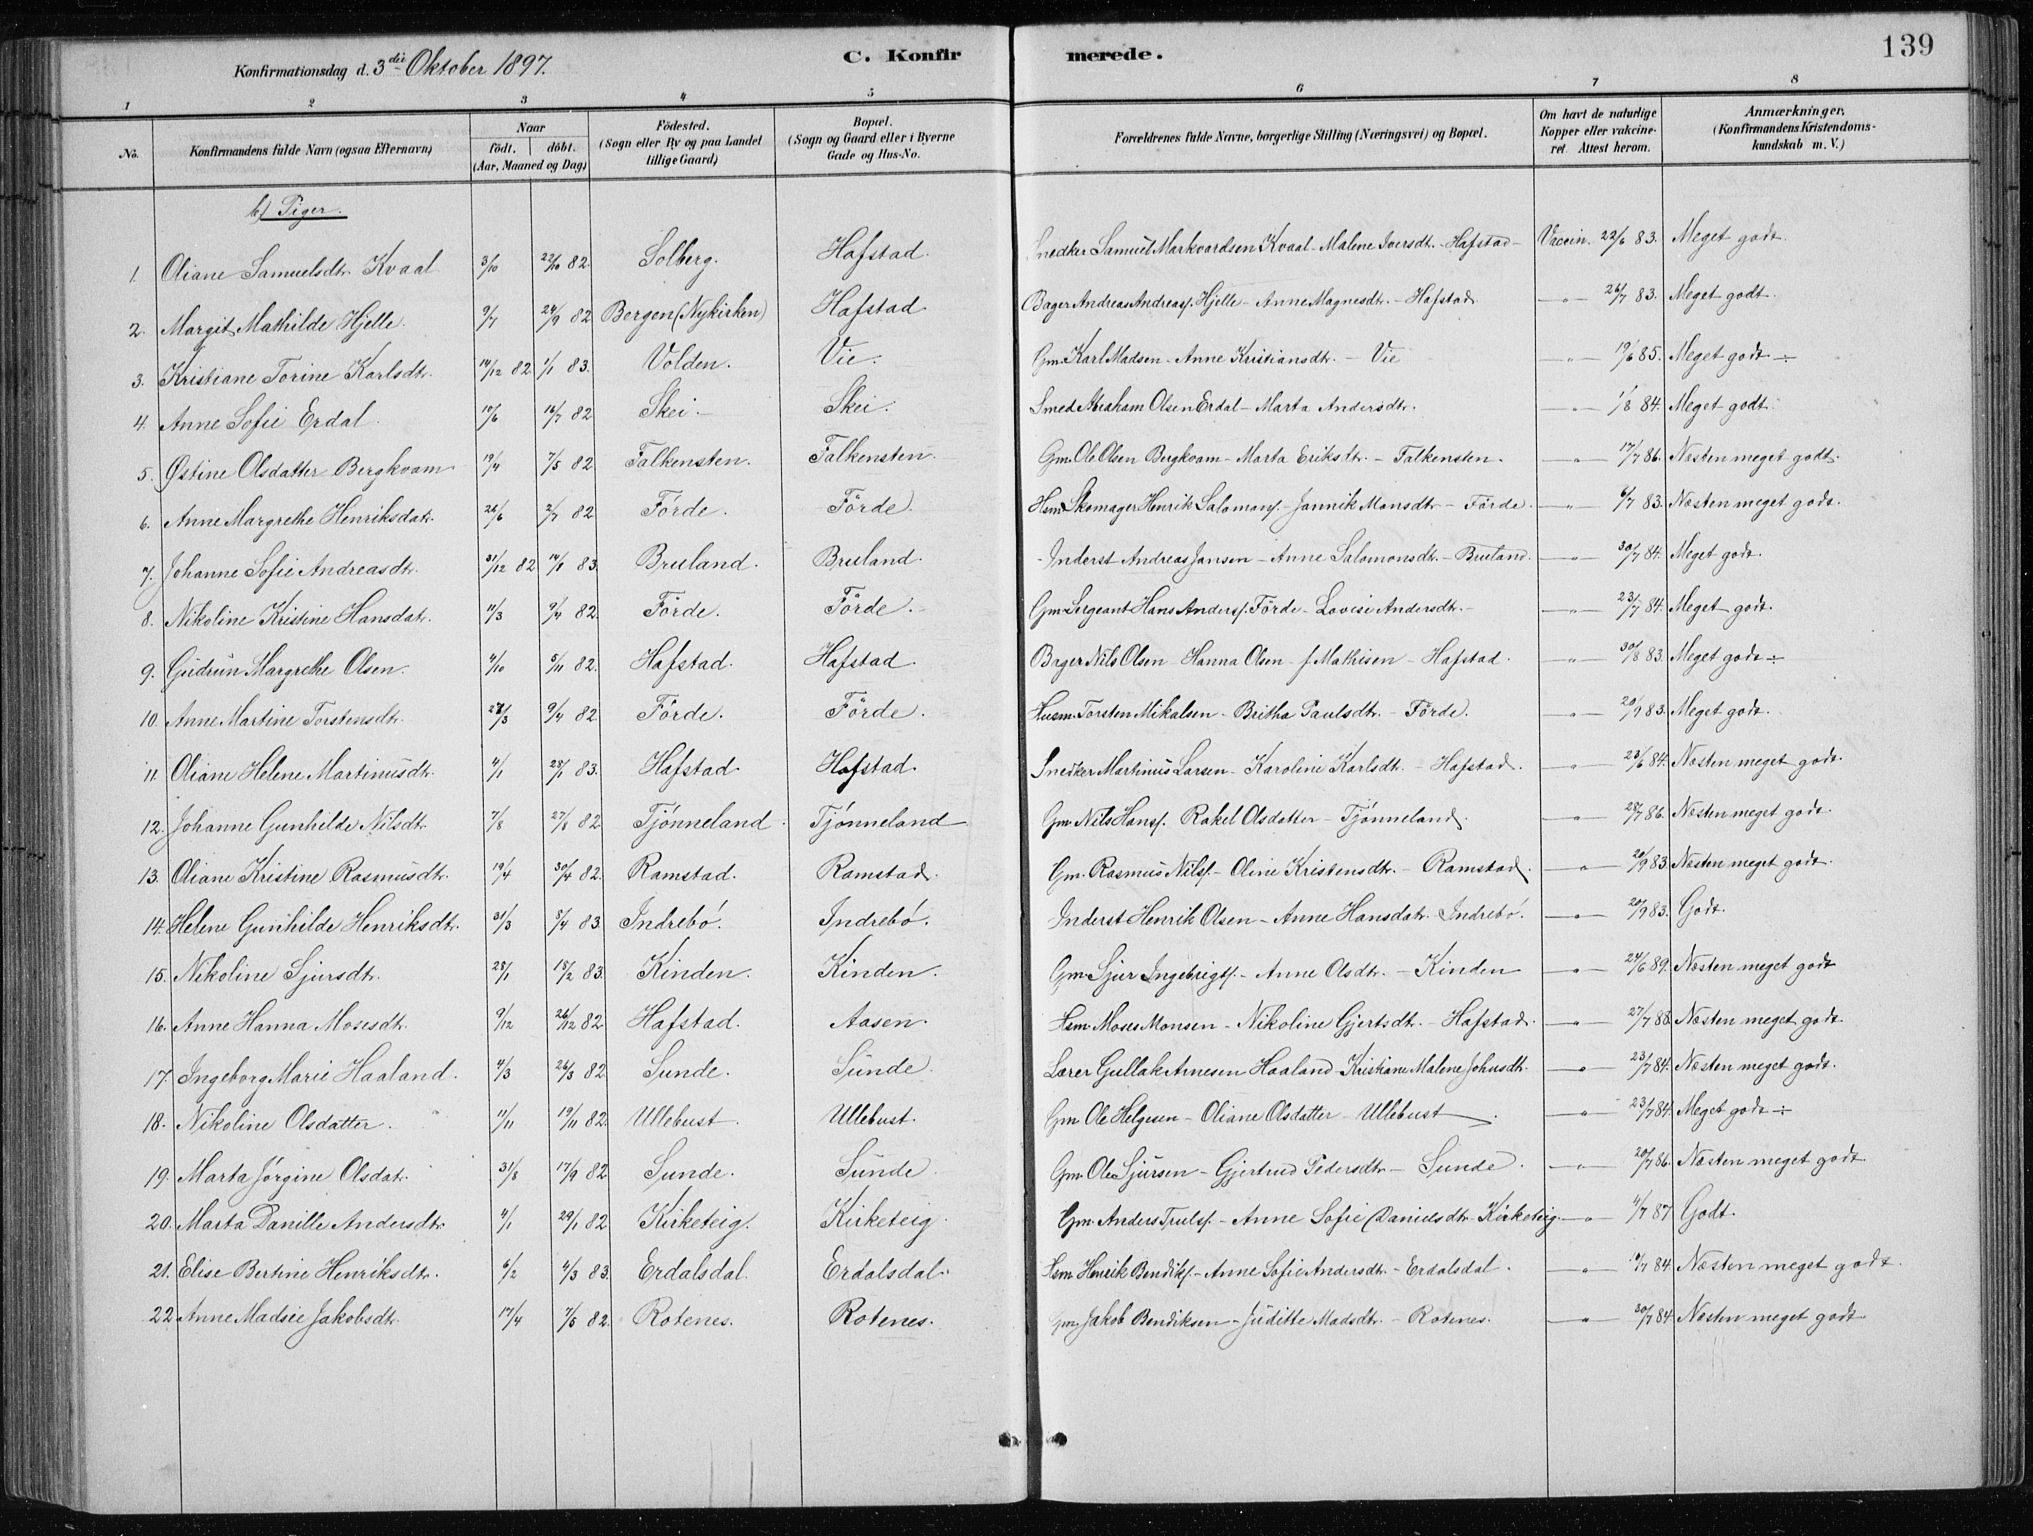 Konfirmationsdag d. 3die Oktober 1897.
C. Konfirmerede.
139
1 2 3 4 5 6 7 8
No. Konfirmandens fulde Navn (ogsaa Efternavn) Naar født. døbt. (Aar, Maaned og Dag) Fødested. (Sogn eller By og paa Landet tillige Gaard) Bopæl. (Sogn og Gaard eller i Byerne Gade og Hus-No. Forældrenes fulde Navne, borgerlige Stilling (Næringsvei) og Bopæl. Om havt de naturlige Kopper eller vakcineret. Attest herom. Anmærkninger. (Konfirmandens Kristendomskundskab m. V.)
b) Piger.
1. Oliane Samuelsdtr. Kvaal 3/10 22/10 82. Solberg. Hafstad. Snedker Samuel Markvardsen Kvaal - Malene Iversdt. - Hafstad - Vaccin. 22/6 83. Meget godt.
2. Margit Mathilde Hjelle. 9/7 24/9 82 Bergen (Nykirken) Hafstad. Bager Andreas Andreasf. Hjelle - Anne Magnesdtr. - Hafstad. -"- 26/7 83. Meget godt.
3. Kristiane Torine Karlsdtr. 14/12 82 1/1 83. Volden. Vie. Gm. Karl Madsen - Anne Kristiansdtr. - Vie -"- 19/6 85. Meget godt ÷
4. Anne Sofie Erdal. 10/6 16/7 82 Skei. Skei. Smed Abraham Olsen Erdal - Marta Andersdtr. -"- 1/8 84. Meget godt.
5. Østine Olsdatter Bergkvam 19/4 7/5 82 Falkensten. Falkensten. Gm. Ole Olsen Bergkvam - Marta Eriksdtr. - Falkensten. -"- 17/7 86. Næsten meget godt.
6. Anne Margrethe Henriksdatr. 26/6 2/7 82 Förde. Förde. Hsm. Skomager Henrik Salomonf. - Jannik Monsdtr - Förde. -"- 6/7 83. Næsten meget godt.
7. Johanne Sofie Andreasdtr. 31/12 82 14/1 83. Bruland. Bruland. Inderst Andreas Jansen - Anne Salomonsdtr. - Bruland. -"- 30/7 84. Meget godt.
8. Nikoline Kristine Hansdatr. 11/3 9/4 82 Förde. Förde. Gm. Sergeant Hans Andersf. Förde - Lovise Andersdtr. - -"- 23/7 84. Meget godt.
9. Gudrun Margrethe Olsen. 4/10 5/11 82. Hafstad. Hafstad. Bager Nils Olsen - Hanna Olsen - f. Mathisen - Hafstad. -"- 30/8 83. Meget godt ÷
10. Anne Martine Torstensdtr. 27/3 9/4 82 Förde. Förde. Husm. Torsten Mikalsen - Britha Paulsdtr. - Förde. -"- 20/9 83. Meget godt.
11. Oliane Helene Martinusdtr. 4/1 28/1 83. Hafstad. Hafstad. Snedker Martinus Larsen - Karoline Karlsdtr. - Hafstad. -"- 23/6 84. Næsten meget godt.
12. Johanne Gunhilde Nilsdtr. 7/8 27/8 82. Tjønneland. Tjønneland Gm. Nils Hansf. Rakel Olsdatter - Tjønneland. -"- 28/7 86. Næsten meget godt.
13. Oliane Kristine Rasmusdtr. 19/4 30/4 82. Ramstad. Ramstad. Gm. Rasmus Nilsf. - Oline Kristensdtr. - Ramstad. -"- 20/9 83. Næsten meget godt.
14. Helene Gunhilde Henriksdtr. 31/3 8/4 83. Indrebø. Indrebø. Inderst Henrik Olsen - Anne Hansdatr. Indrebø. -"- 20/9 83. Godt.
15. Nikoline Sjursdtr. 28/1 18/2 83. Kinden. Kinden. Gm. Sjur Ingebrigtf. - Anne Olsdtr. - Kinden -"- 24/6 89. Næsten meget godt
16. Anne Hanna Mosesdtr. 9/12 26/12 82. Hafstad. Aasen. Hsm. Moses Monsen - Nikoline Gjertsdtr. - Hafstad. -"- 27/7 88. Næsten meget godt.
17. Ingeborg Marie Haaland. 4/3 26/3 82. Sunde. Sunde. Lærer Gullak Arnesen Haaland - Kristiane Malene Johnsdtr. -"- 23/7 84. Næsten meget godt.
18. Nikoline Olsdatter. 11/11 19/11 82. Ullebust. Ullebust. Gm. Ole Helgesen - Oliane Olsdatter - Ullebust. -"- 23/7 84. Meget godt ÷
19. Marta Jørgine Olsdatr. 31/8 17/9 82. Sunde. Sunde. Gm. Ole Sjursen - Gjertrud Pedersdtr. - Sunde. -"- 20/7 86. Næsten meget godt.
20. Marta Danille Andersdtr. 4/1 29/1 82. Kirketeig. Kirketeig. Gm. Anders Trulsf. - Anne Sofie Danielsdtr. Kirketeig. -"- 4/7 87 Godt.
21. Elise Bertine Henriksdtr. 6/2 4/3 83. Erdalsdal. Erdalsdal. Hsm. Henrik Bendiksf. - Anne Sofie Andersdtr. - Erdalsdal. -"- 9/7 84. Næsten meget godt.
22 Anne Madsie Jakobsdtr. 17/4 7/5 82. Rotenes. Rotenes. Gm. Jakob Bendiksen - Juditte Madsdtr. - Rotenes. -"- 30/7 84 Næsten meget godt